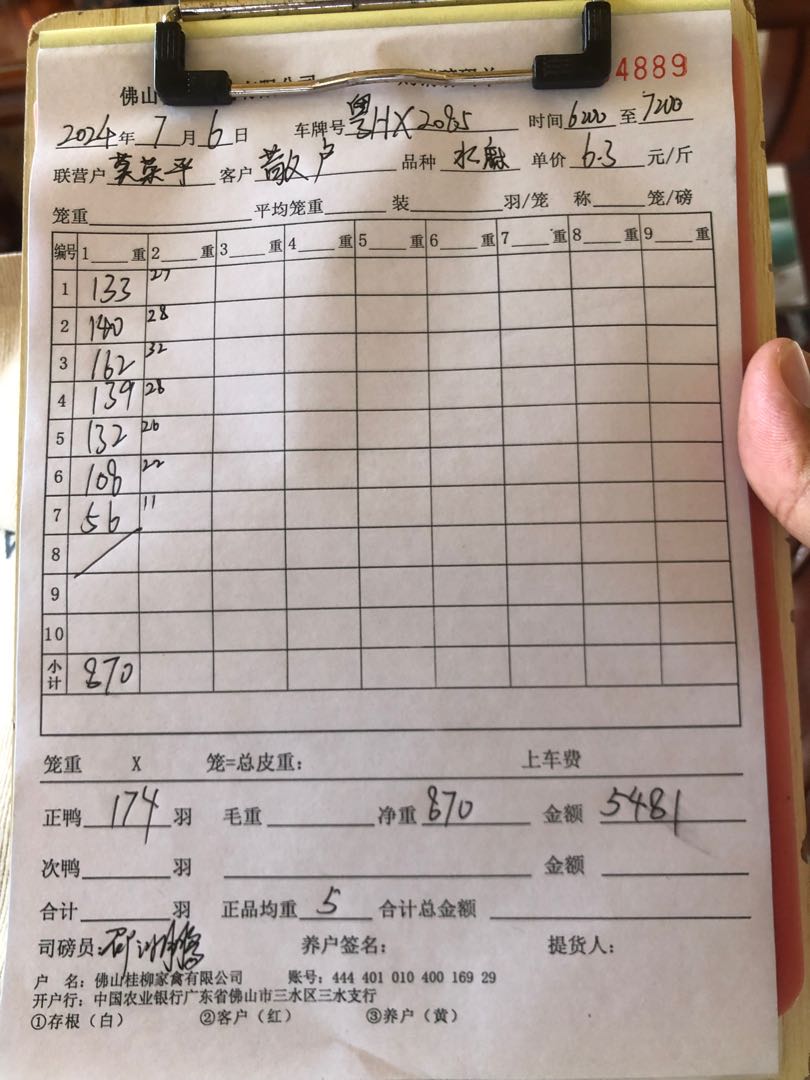 佛山 4889
2024年 7月 6日 车牌号 粤HX2085 时间 6200 至 7200
联营户 莫荣平 客户 散户 品种 水麻 单价 6.3 元/斤
笼重 平均笼重 装 羽/笼 称 笼/磅
编号 1 重 2 重 3 重 4 重 5 重 6 重 7 重 8 重 9 重
1 133 27
2 140 28
3 162 32
4 139 28
5 132 26
6 108 22
7 56 11
8
9
10
小计 870
笼重 X 笼=总皮重: 上车费
正鸭 174 羽 毛重 净重 870 金额 5481
次鸭 羽 金额
合计 羽 正品均重 5 合计总金额
司磅员: 养户签名: 提货人:
户 名: 佛山桂柳家禽有限公司 账号: 444 401 010 400 169 29
开户行: 中国农业银行广东省佛山市三水区三水支行
①存根（白） ②客户（红） ③养户（黄）